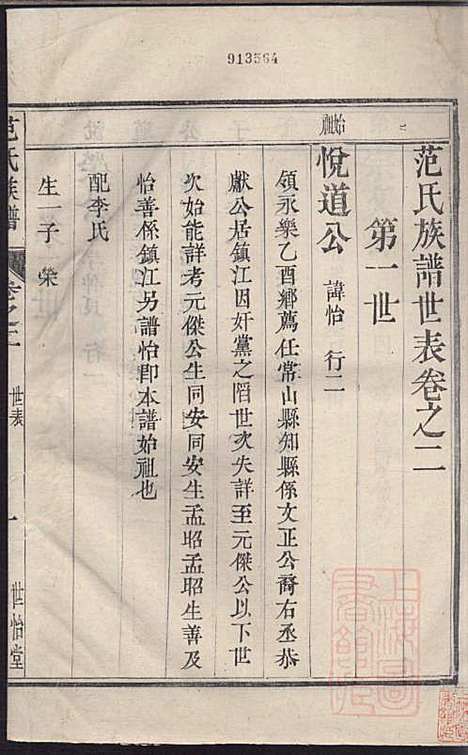 913564
范氏族譜世表卷之二
第一世
始祖
悅道公 諱怡 行二
領永樂乙酉鄉薦任常山縣知縣係文正公裔右丞恭
獻公居鎮江因奸黨之䧟世次失詳至元傑公以下世
次始能詳考元傑公生同安同安生孟昭孟昭生善及
怡善係鎮江另譜怡即本譜始祖也
配李氏
生一子 榮
范氏族譜 卷之二 世表 一 世怡堂
上海圖書館藏